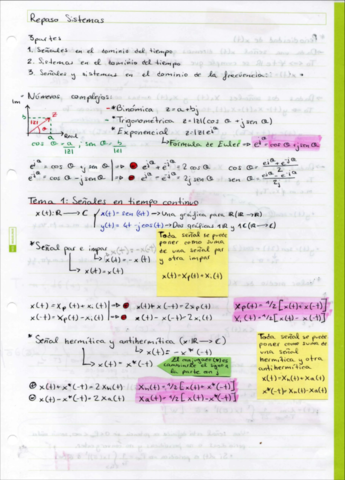 Repaso Sistemas
3 partes
1. Señales en el dominio del tiempo
2. Sistemas en el dominio del tiempo
3. Señales y sistemas en el dominio de la frecuencia
Números complejos:
* Binómica z = a + bj
* Trigonométrica z = |z| (cos θ + j sen θ)
* Exponencial z = |z| e^jθ
Fórmula de Euler → e^jθ = cos θ + j sen θ
cos θ = a/|z| ; sen θ = b/|z|
Tema 1: Señales en tiempo continuo
x(t): R → C
Una gráfica para R (R → R)
Dos gráficas
* Señal par e impar
x(t) = -x(-t)
x(t) = x(-t)
Toda señal se puede
poner como suma
de una señal par
y otra impar
x(t) = Xp(t) + Xi(t)
x(t) = Xp(t) + Xi(t)
x(-t) = Xp(t) - Xi(t)
x(t) + x(-t) = 2Xp(t)
x(t) - x(-t) = 2Xi(t)
Xp(t) = 1/2 [x(t) + x(-t)]
Xi(t) = 1/2 [x(t) - x(-t)]
* Señal hermítica y antihermítica (x: R → C)
x(t) = -x*(-t)
x(t) = x*(-t)
Toda señal se puede
poner como suma de
una señal
hermítica y otra
antihermítica
x(t) = Xh(t) + Xa(t)
x*(-t) = Xh(t) - Xa(t)
x(t) + x*(-t) = 2Xh(t)
x(t) - x*(-t) = 2Xa(t)
Xh(t) = 1/2 [x(t) + x*(-t)]
Xa(t) = 1/2 [x(t) - x*(-t)]